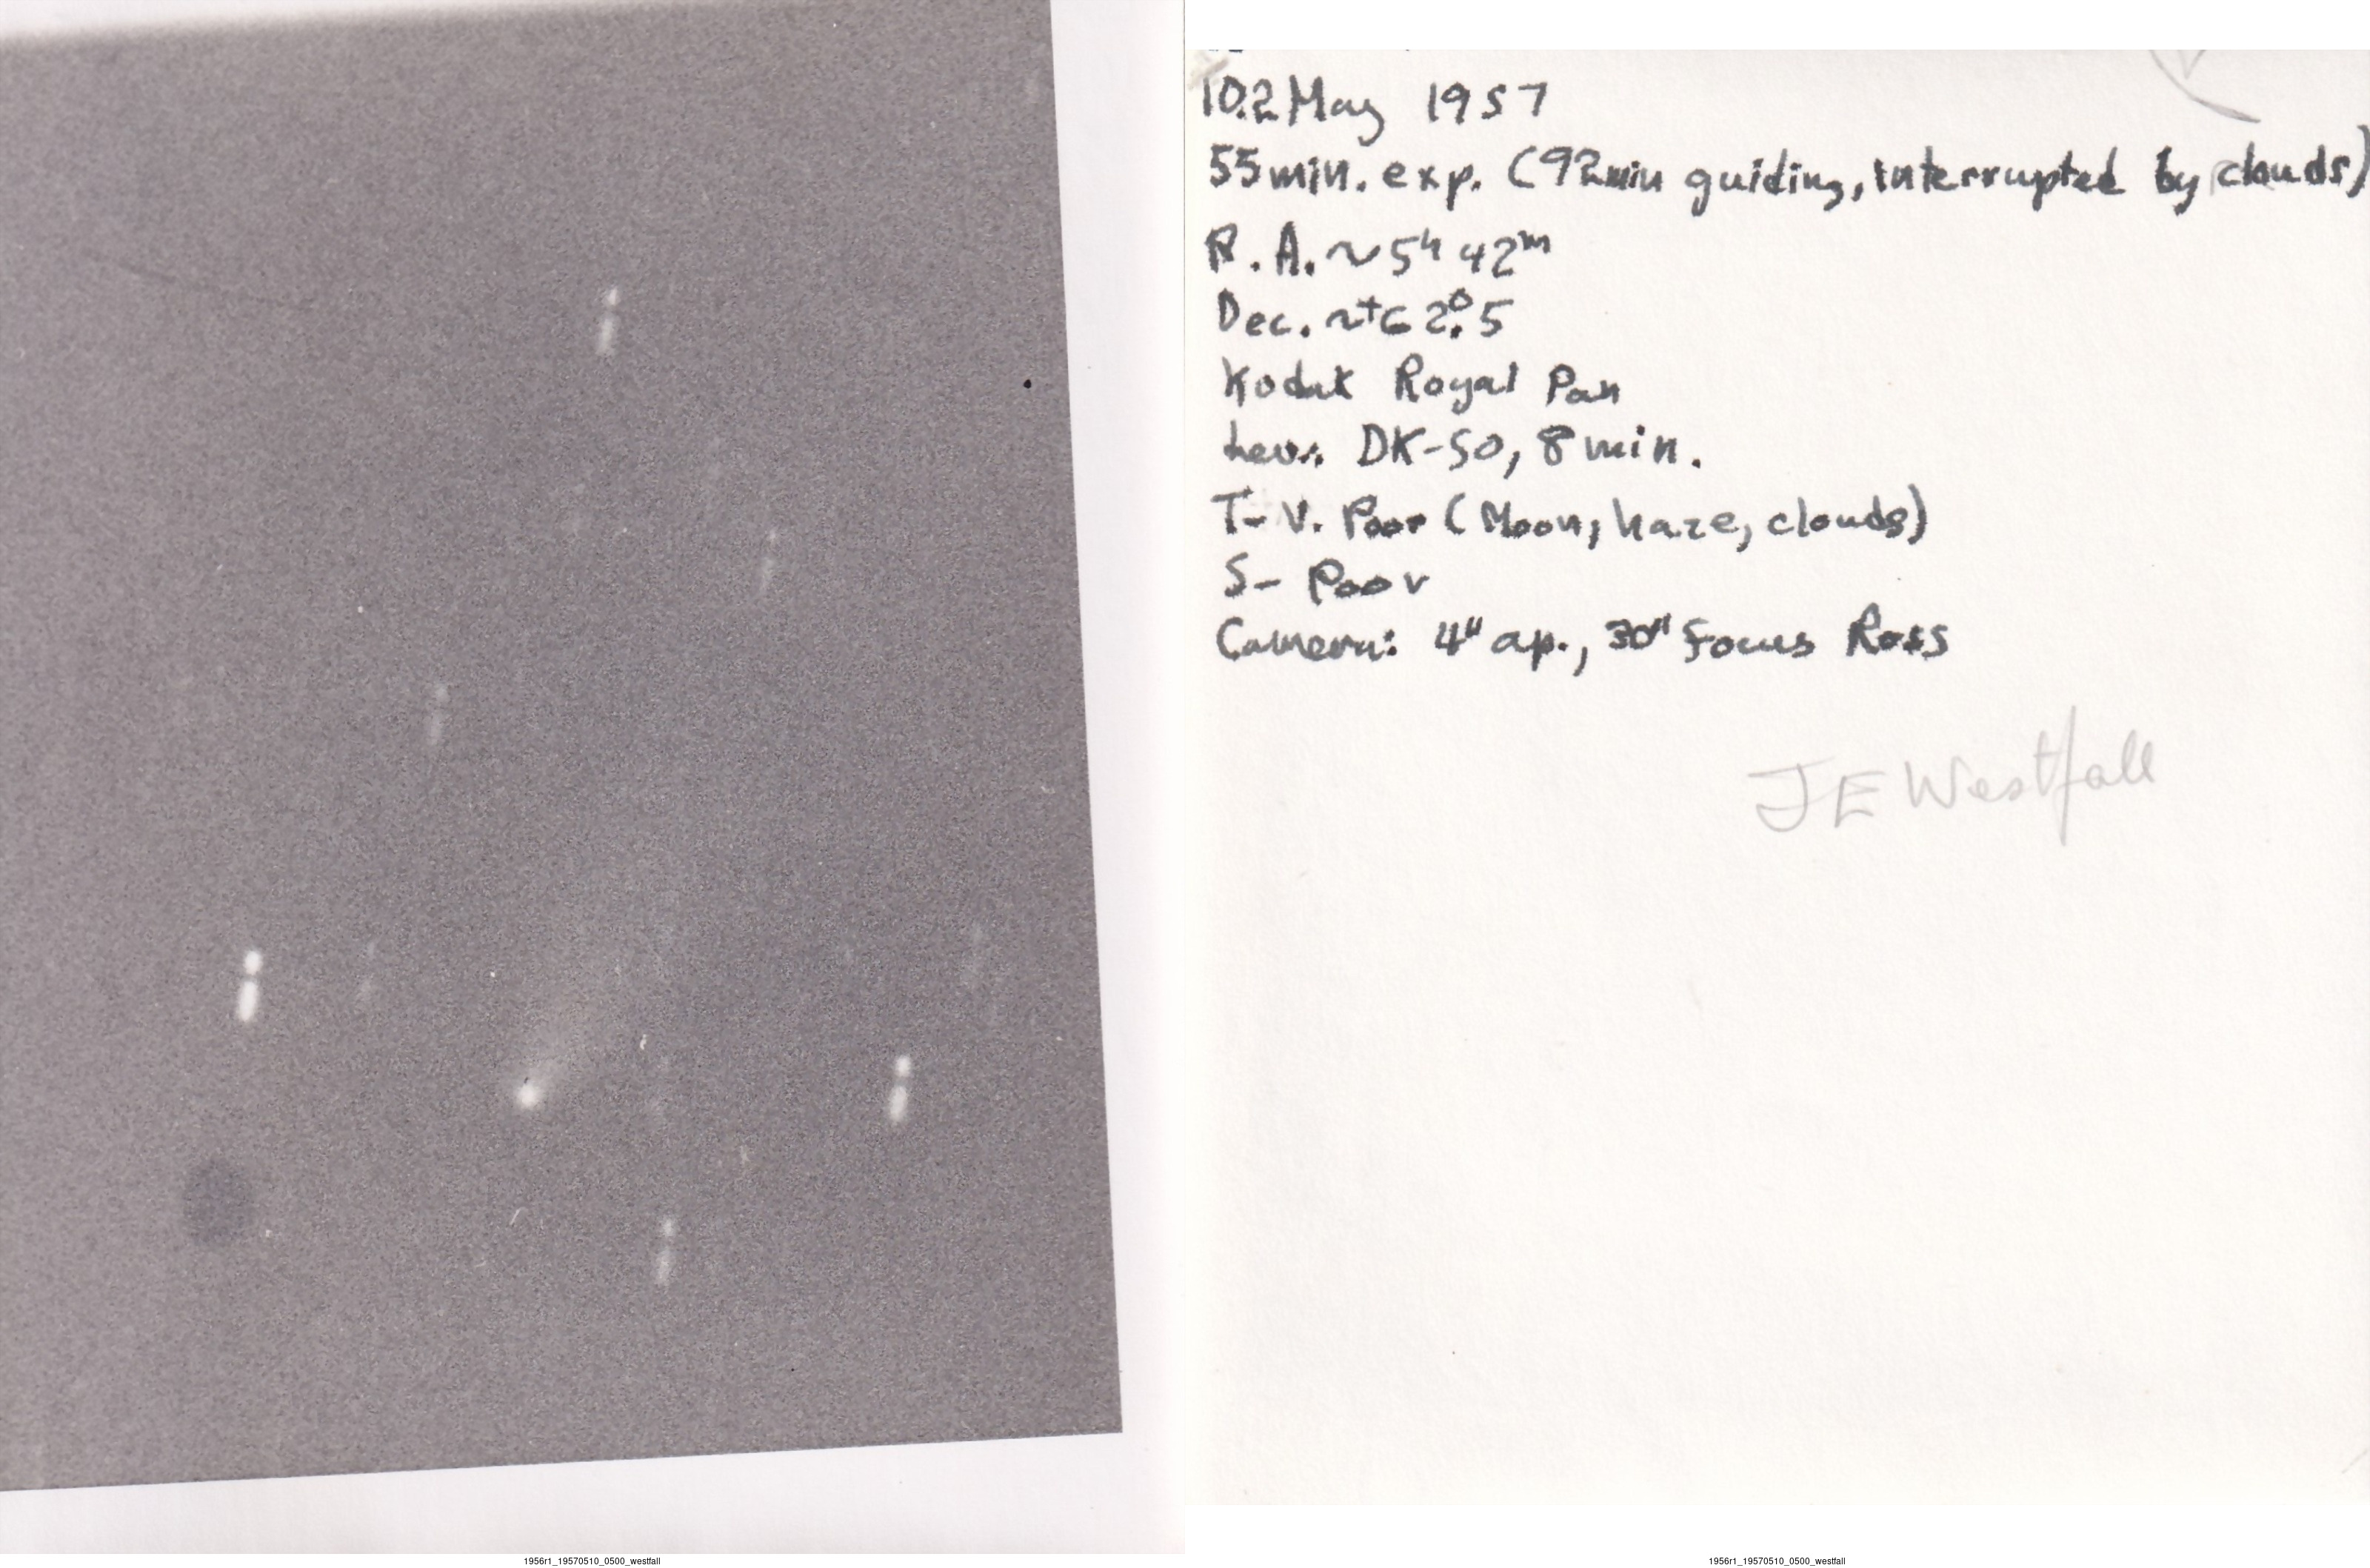 10.2 May 1957
55 min. exp. (92 min guiding, interrupted by clouds)
R.A. ~ 5h 42m
Dec. ~ +62°.5
Kodak Royal Pan
Dev.: DK-50, 8 min.
T- V. Poor (Moon, haze, clouds)
S- Poor
Camera: 4" ap., 30" focus Ross
J E Westfall
1956r1_19570510_0500_westfall
1956r1_19570510_0500_westfall